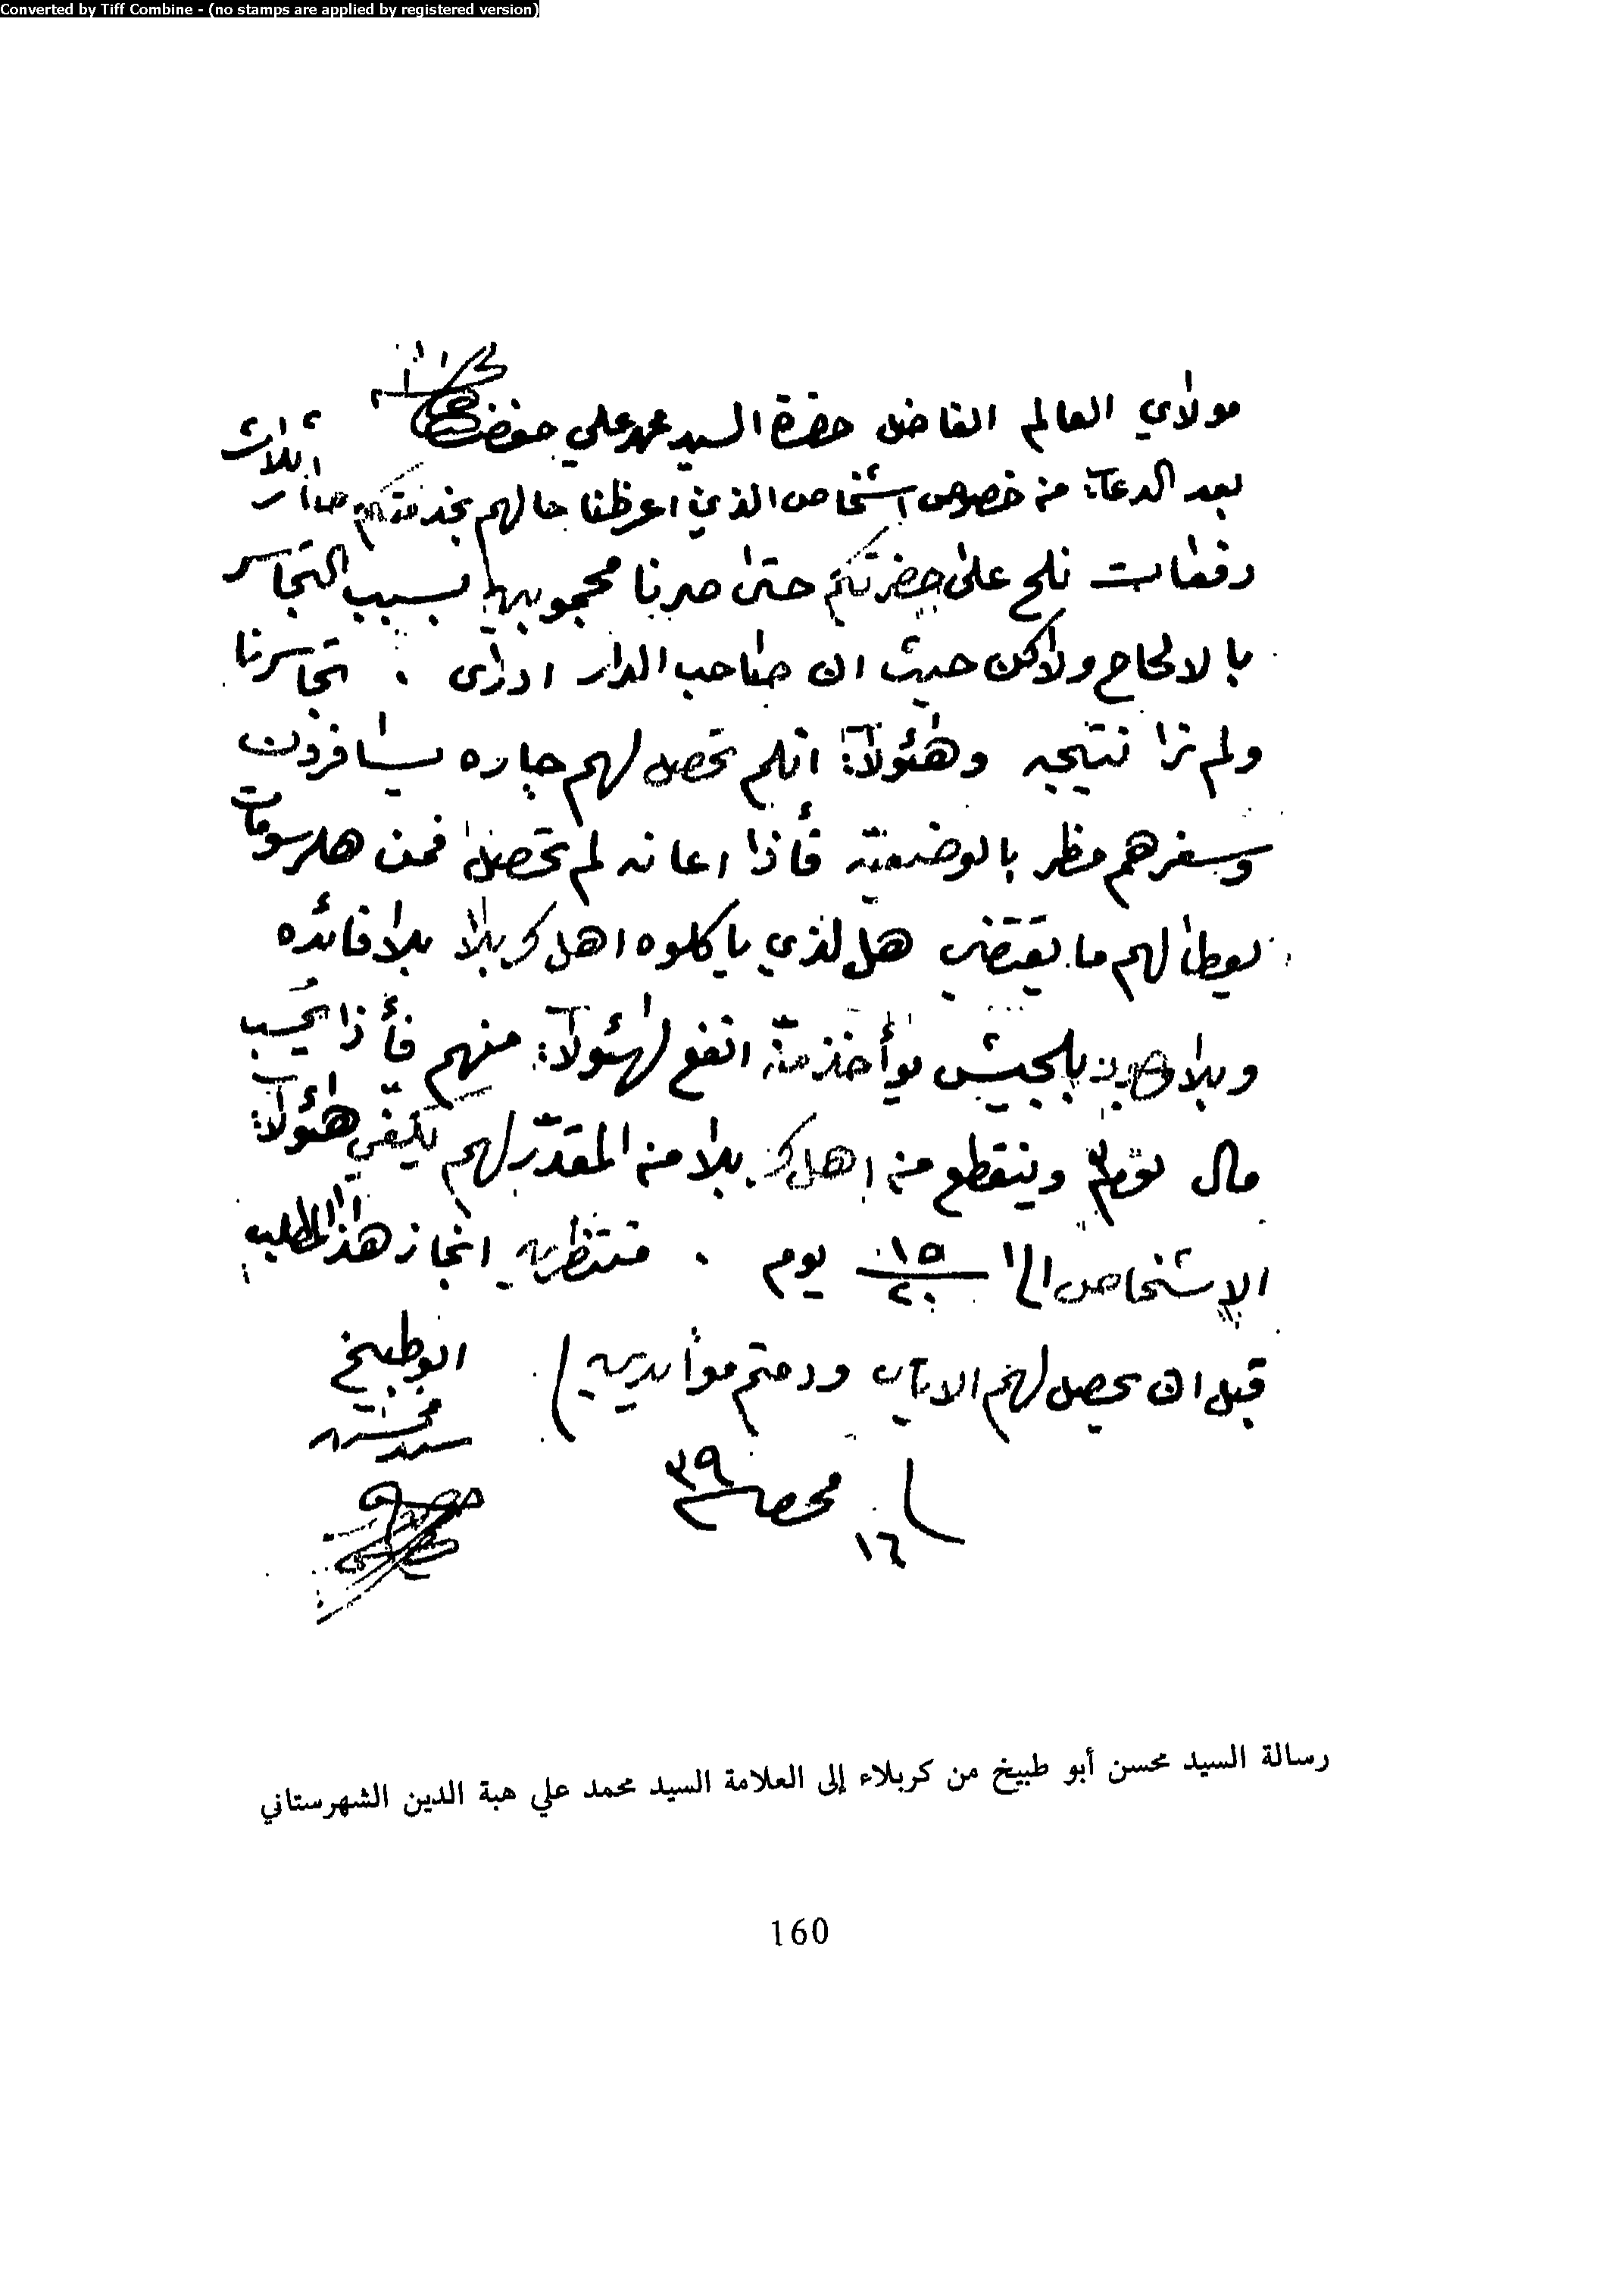 Converted by Tiff Combine - (no stamps are applied by registered version)
مولاي العالم الفاضل حضرة السيد محمد علي
بعد الدعاء من خصوص اشخاص الذي اعرظنا حالهم بخدمتكم صار اثلاث
دفعات نلح على حضرتكم حتى صرنا محجوبين بسبب التجاسر
بالالحاح ولاكن حيث ان صاحب الدار ادرى . تجاسرنا
ولم نرا نتيجه وهئولاء انلم تحصل لهم چاره يسافرون
وسفرهم مظر بالوضعية فأذا اعانه لم تحصل فمن هلرسومات
يعطا لهم ما يقتضي هل لذي ياكلوه اهل كربلا بلا فائده
وبلا بلجيش يوأخذ منه انفع لهئولاء منهم فأذا
مال وينقطع من اهل كربلا من المقدّر لهم يكفي هئولاء
الاشخاص الى ١٥ ٢٠ يوم . منتظرين انجاز هذا المطلب
قبل ان يحصل لهم الاياب ودمتم موأيدين
ابوطبيخ
سيد محسن
١٦ ٣٩
رسالة السيد محسن أبو طبيخ من كربلاء إلى العلامة السيد محمد علي هبة الدين الشهرستاني
160